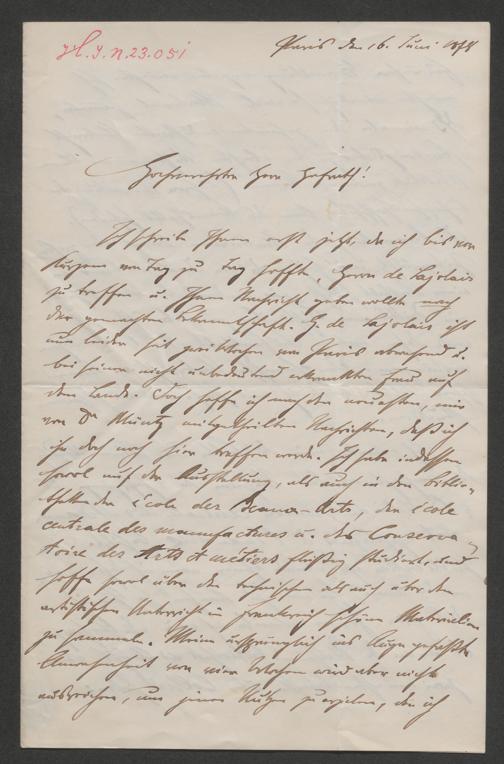 H. I. N. 23.051
Paris den 16. Juni 1878
Hochverehrter Herr Hofrath!
Ich schreibe Ihnen erst jetzt, da ich bis vor
Kurzem von Tag zu Tag hoffte, Herrn de Lajolais
zu treffen u. Ihnen Nachricht geben wollte nach
der gemachten Bekanntschaft. H. de Lajolais ist
nun leider seit zwei Wochen von Paris abwesend u.
bei seiner nicht unbedeutend erkrankten Frau auf
dem Lande. Doch hoffe ich nach den neuesten, mir
von Dr Müntz mitgetheilten Nachrichten, daß ich
ihn doch noch hier treffen werde. Ich habe indessen
sowol auf der Ausstellung, als auch in den Biblio-
theken der École des Beaux-Arts, der école
centrale des manufactures u. des Conserva-
toire des Arts et métiers fleißig studiert, und
hoffe sowol über den technischen als auch über den
artistischen Unterricht in Frankreich schöne Materialien
zu sammeln. Meine ursprünglich ins Auge gefaßte
Anwesenheit von vier Wochen wird aber nicht
ausreichen, um jenen Nutzen zu erzielen, den ich